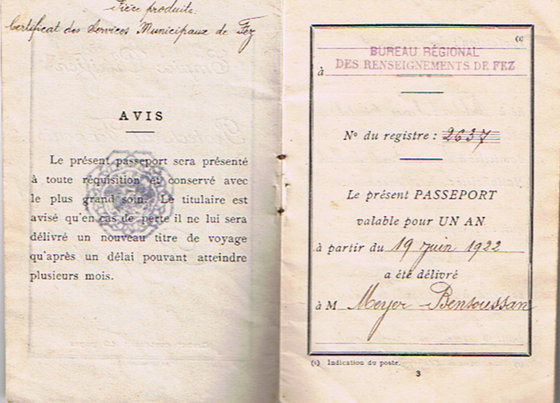 Pièce produite:
Certificat des Services Municipaux de Fez
AVIS
Le présent passeport sera présenté
à toute réquisition et conservé avec
le plus grand soin. Le titulaire est
avisé qu'en cas de perte il ne lui sera
délivré un nouveau titre de voyage
qu'après un délai pouvant atteindre
plusieurs mois.
(c)
BUREAU RÉGIONAL
à DES RENSEIGNEMENTS DE FEZ
Nº du registre : 2637
Le présent PASSEPORT
valable pour UN AN
à partir du 19 juin 1922
a été délivré
à M Meyer Bensoussan
(c) Indication du poste.
3